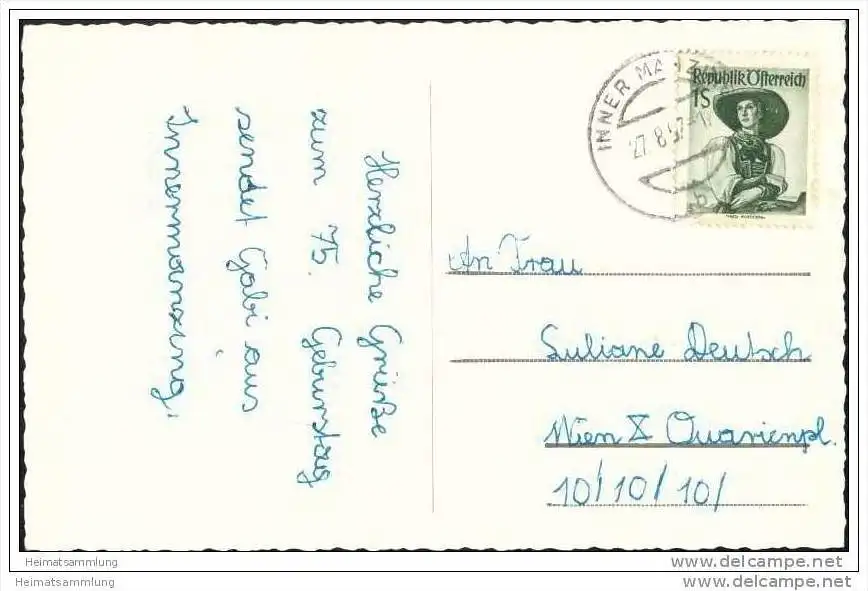 Herzliche Grüße
zum 75. Geburtstag
sendet Gabi aus
Innermanzing.
INNER MANZING
27.8.57
b
Republik Österreich
1S
An Frau
Juliane Deutsch
Wien X Quarienpl.
10/10/10/
Heimatsammlung
www.delcampe.net
Heimatsammlung
www.delcampe.net